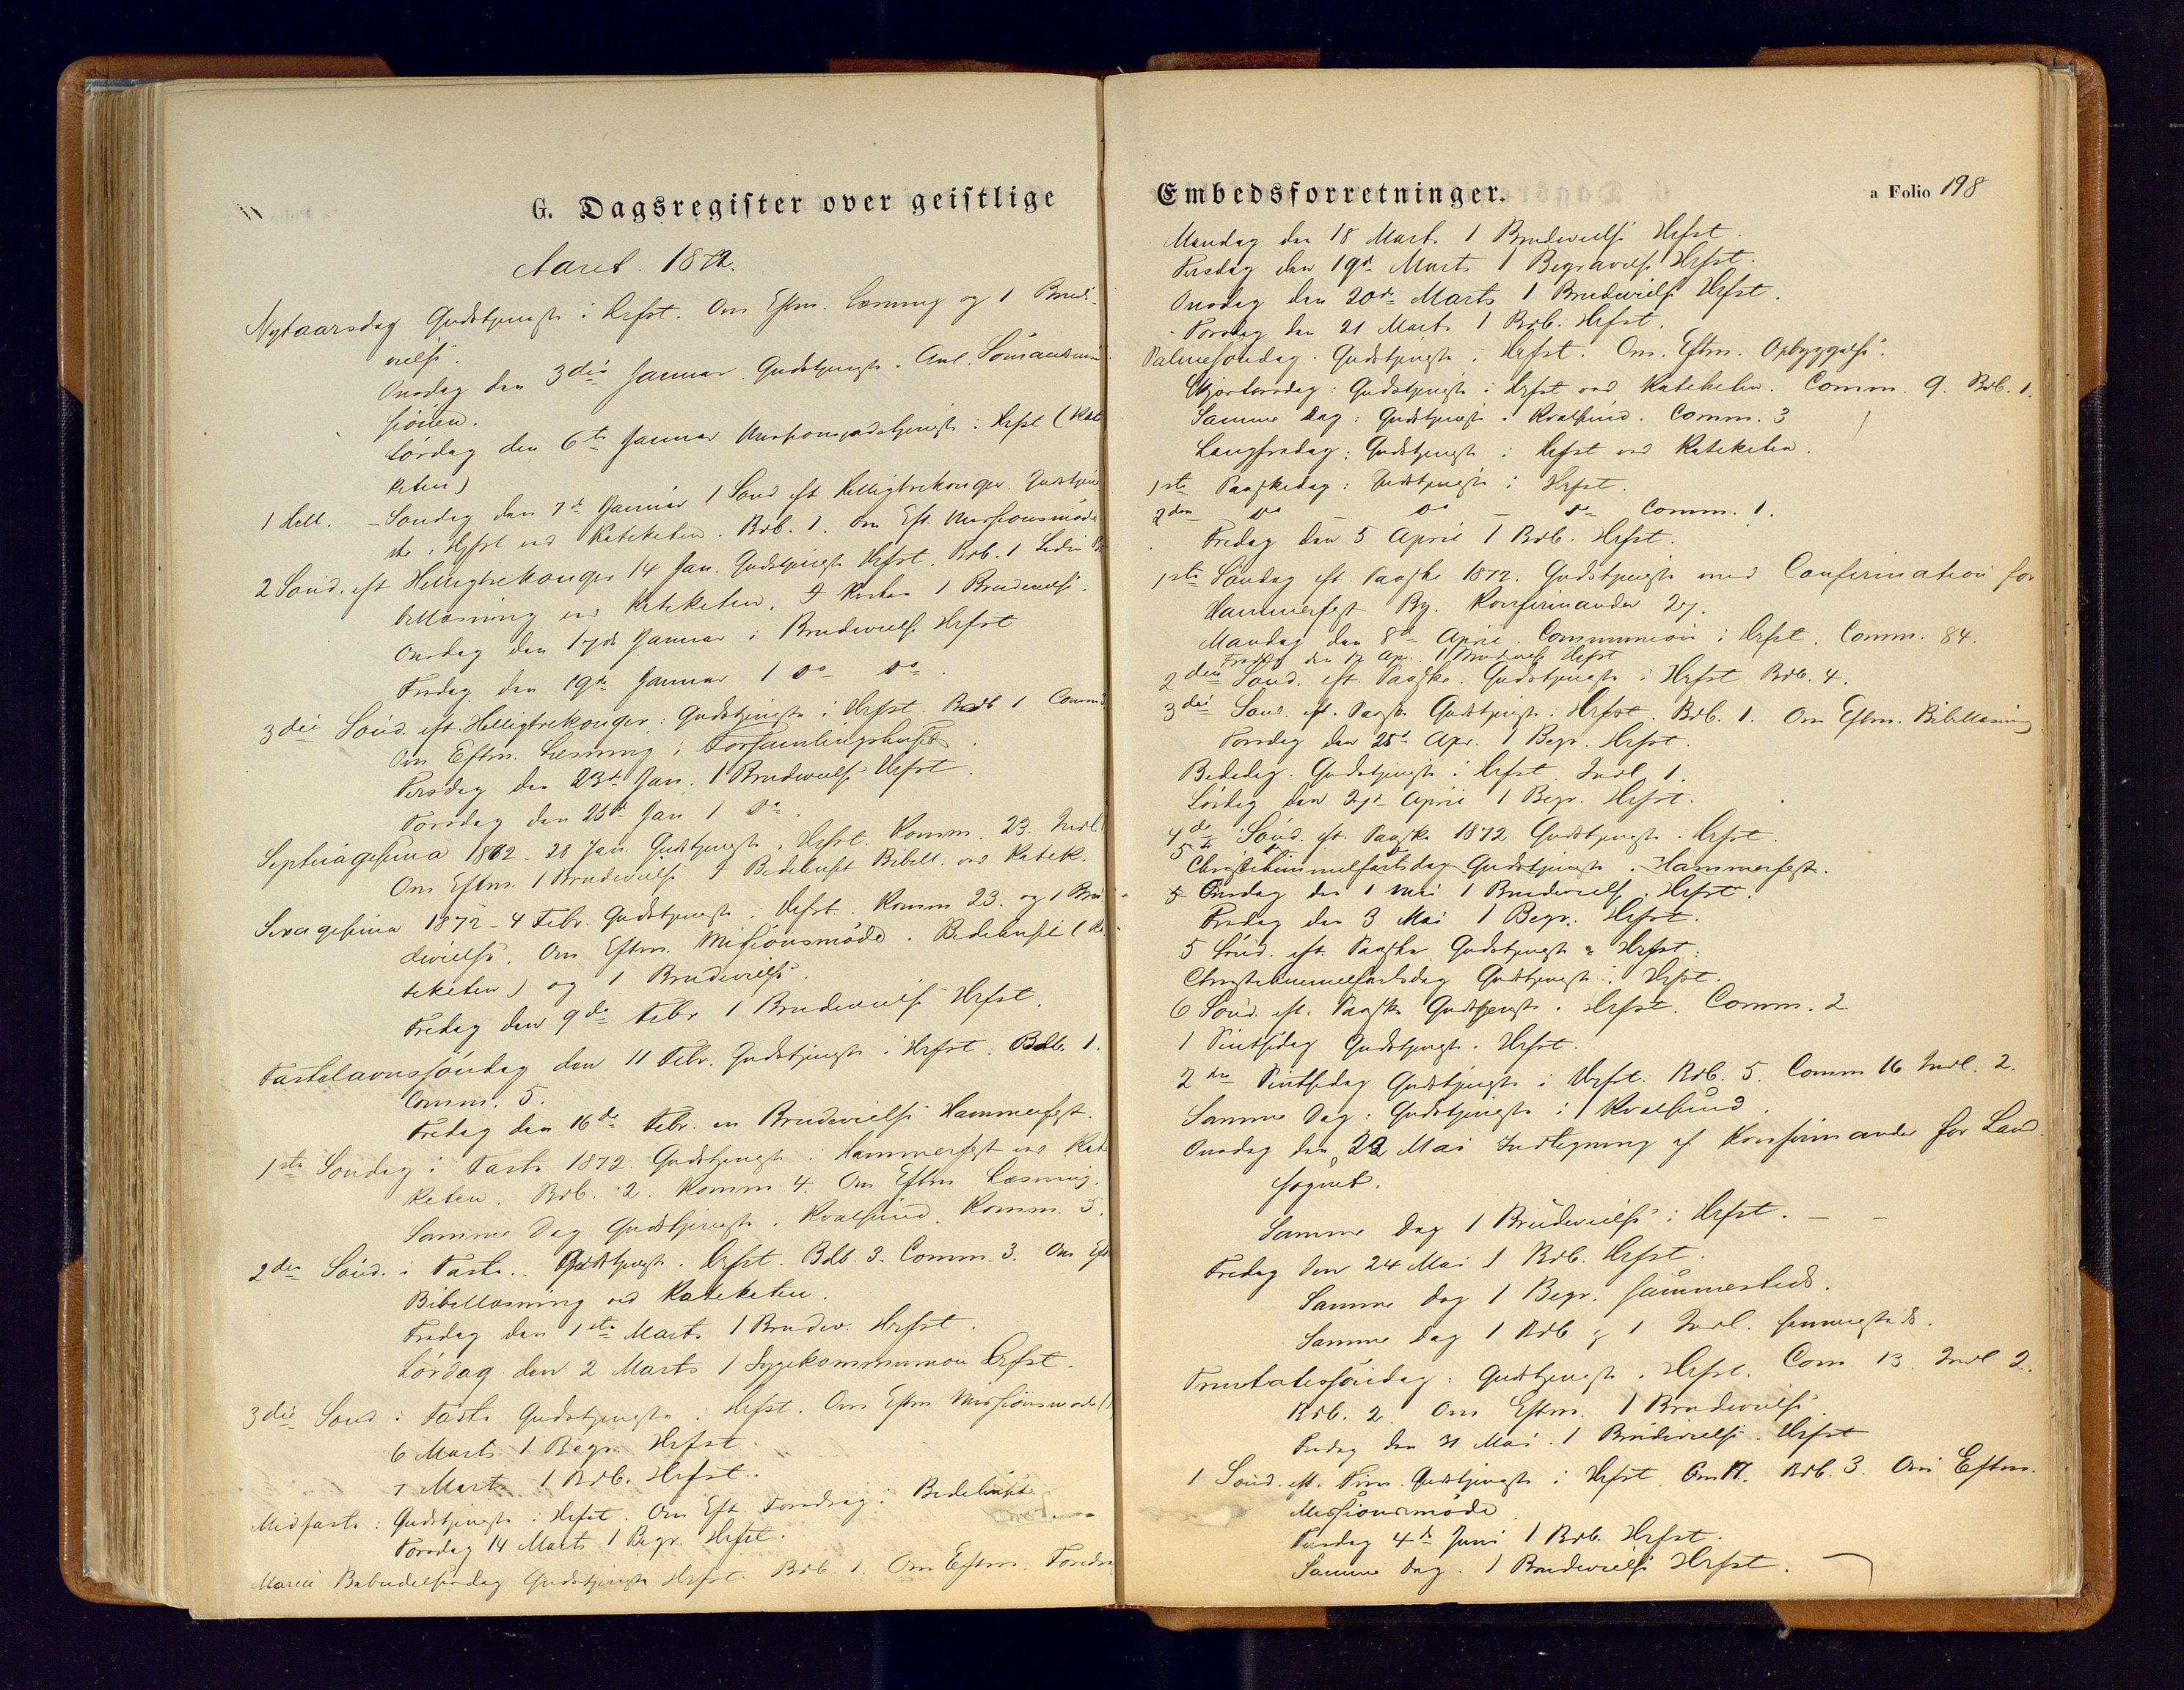 G. Dagsregister over geistlige
Aaret 1872.
Nytaarsdag Gudstjeneste i Hrfst. Om Eftm. Læsning og 1 Brude-
vielse.
Onsdag den 3die Januar Gudstjeneste. Anl.
Lørdag den 6te Januar i Hrfst (Kate
keten)
1 Hell. – Søndag den 7de Januar 1 Sønd eft Helligtrekonger. Gudstjene
ste i Hrfst ved Kateketen. Bdb. 1. Om Eft. Missionsmøde
2 Sønd. eft Helligtrekonger 14 Jan. Gudstjeneste Hrfst. Bdb. 1
bellæsning ved Kateketen. 1 Brudevielse.
Onsdag den 17de Januar 1 Brudevielse Hrfst
Fredag den 19de Januar 1 do do.
3die Sønd. eft. Helligtrekonger: Gudstjeneste i Hrfst. Bdb 1 Comm
Om Eftm. Læsning i Forsamlingshuset.
Tirsdag den 23de Jan. 1 Brudevielse Hrfst.
Torsdag den 25de Jan 1 do.
Septuagesima 1872 - 28 Jan. Gudstjeneste i Hrfst. Komm. 23. Indl.
Om Eftm. 1 Brudevielse. I Bedehuset Bibell. ved Katek.
Sexagesima 1872 - 4 Febr. Gudstjeneste i Hrfst. Komm 23. og 1 Bru
devielse. Om Eftm. Missionsmøde i Bedehuset (Ka
teketen) og 1 Brudevielse.
Fredag den 9de Febr 1 Brudevielse Hrfst.
Fastelavnssøndag den 11 Febr. Gudstjeneste i Hrfst. Bdb. 1.
Comm. 5.
Fredag den 16de Febr. en Brudevielse Hammerfest.
1ste Søndag i Faste 1872. Gudstjeneste i Hammerfest ved Kate
keten. Bdb. 2. Komm 4. Om Eftm Læsning.
Samme Dag Gudstjeneste i Kvalsund. Komm. 5.
2den Sønd. i Faste. Gudstjeneste i Hrfst. Bdb. 3. Comm. 3. Om Eft
Bibellæsning ved Kateketen.
Fredag den 1ste Marts 1 Brudev. Hrfst.
Lørdag den 2 Marts 1 Sygekommunion Hrfst.
3die Sønd i Faste Gudstjeneste i Hrfst. Om Eftm Missionsmøde (
6 Marts 1 Begr. Hrfst.
7 Marts 1 Bdb. Hrfst.
Midfaste: Gudstjeneste i Hrfst. Om Eft. Foredrag i Bedehuset
Torsdag 14 Marts 1 Begr. Hrfst.
Mariæ Bebudelsesdag Gudstjeneste Hrfst. Bdb. 1. Om Eftm. Foredra
Embedsforretninger.
a Folio 198
Mandag den 18 Marts 1 Brudevielse Hrfst.
Tirsdag den 19de Marts 1 Begravelse Hrfst.
Onsdag den 20de Marts 1 Brudevielse Hrfst.
Torsdag den 21 Marts 1 Bdb. Hrfst.
Palmesøndag. Gudstjeneste i Hrfst. Om. Eftm. Opbyggelse.
Skjærtorsdag: Gudstjeneste i Hrfst ved Kateketen. Comm. 9. Bdb. 1.
Samme Dag: Gudstjeneste i Kvalsund. Comm. 3
Langfredag: Gudstjeneste i Hrfst ved Kateketen.
1ste Paaskedag: Gudstjeneste i Hrfst.
2den do – do – do Comm. 1.
Fredag den 5 April 1 Bdb. Hrfst.
1ste Søndag eft. Paaske 1872. Gudstjeneste med Confirmation for
Hammerfest By. Konfirmander 27.
Mandag den 8de April. Communion i Hrfst. Comm. 84.
Fredag den 12 Apr. 1 Brudevielse Hrfst
2den Sønd. eft. Paaske. Gudstjeneste i Hrfst Bdb. 4.
3die Sønd. eft. Paaske Gudstjeneste i Hrfst. Bdb. 1. Om Eftm. Bibellæsning
Torsdag den 25de Apr. 1 Begr. Hrfst.
Bededag. Gudstjeneste i Hrfst. Indl. 1.
Lørdag den 27de April 1 Begr. Hrfst.
4de Sønd. eft. Paaske 1872 Gudstjeneste i Hrfst.
5te
Christihimmelfartsdag Gudstjeneste i Hammerfest.
Onsdag den 1 Mai 1 Brudevielse i Hrfst.
Fredag den 3 Mai 1 Begr. Hrfst.
5 Sønd. eft. Paaske Gudstjeneste i Hrfst.
Christihimmelfartsdag Gudstjeneste i Hrfst.
6 Sønd. eft. Paaske Gudstjeneste i Hrfst. Comm. 2
1 Pintsedag Gudstjeneste i Hrfst.
2den Pintsedag Gudstjeneste i Hrfst. Bdb. 5. Comm 16 Indl. 2.
Samme Dag: Gudstjeneste i Kvalsund.
Onsdag den 22 Mai Indtegning af Konfirmander for Land
sognet.
Samme Dag 1 Brudevielse i Hrfst. – –
Fredag den 24 Mai 1 Bdb. Hrfst.
Samme Dag 1 Begr. sammesteds.
Samme Dag 1 Bdb og 1 Indl. sammesteds.
Trinitatissøndag: Gudstjeneste i Hrfst. Com. 13. Indl 2.
Bdb. 2. Om Eftm. 1 Brudevielse.
Fredag den 31 Mai. 1 Brudevielse. Hrfst
1 Sønd. eft. Trin. Gudstjeneste i Hrfst. Bdb. 3. Om Eftm.
Missionsmøde.
Tirsdag 4de Juni 1 Bdb. Hrfst.
Samme Dag. 1 Brudevielse Hrfst.